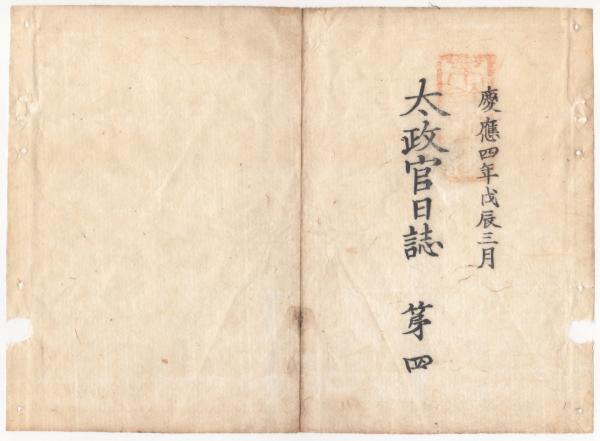 慶應四年戊辰三月
太政官日誌　苐四